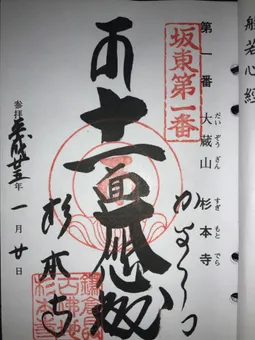 般若心經
第一番 大蔵山 杉本寺
だい ぞう ざん すぎ もと でら
坂東第一番
十一面大悲殿
杉本寺
参拝 平成廿五年 一月 廿日